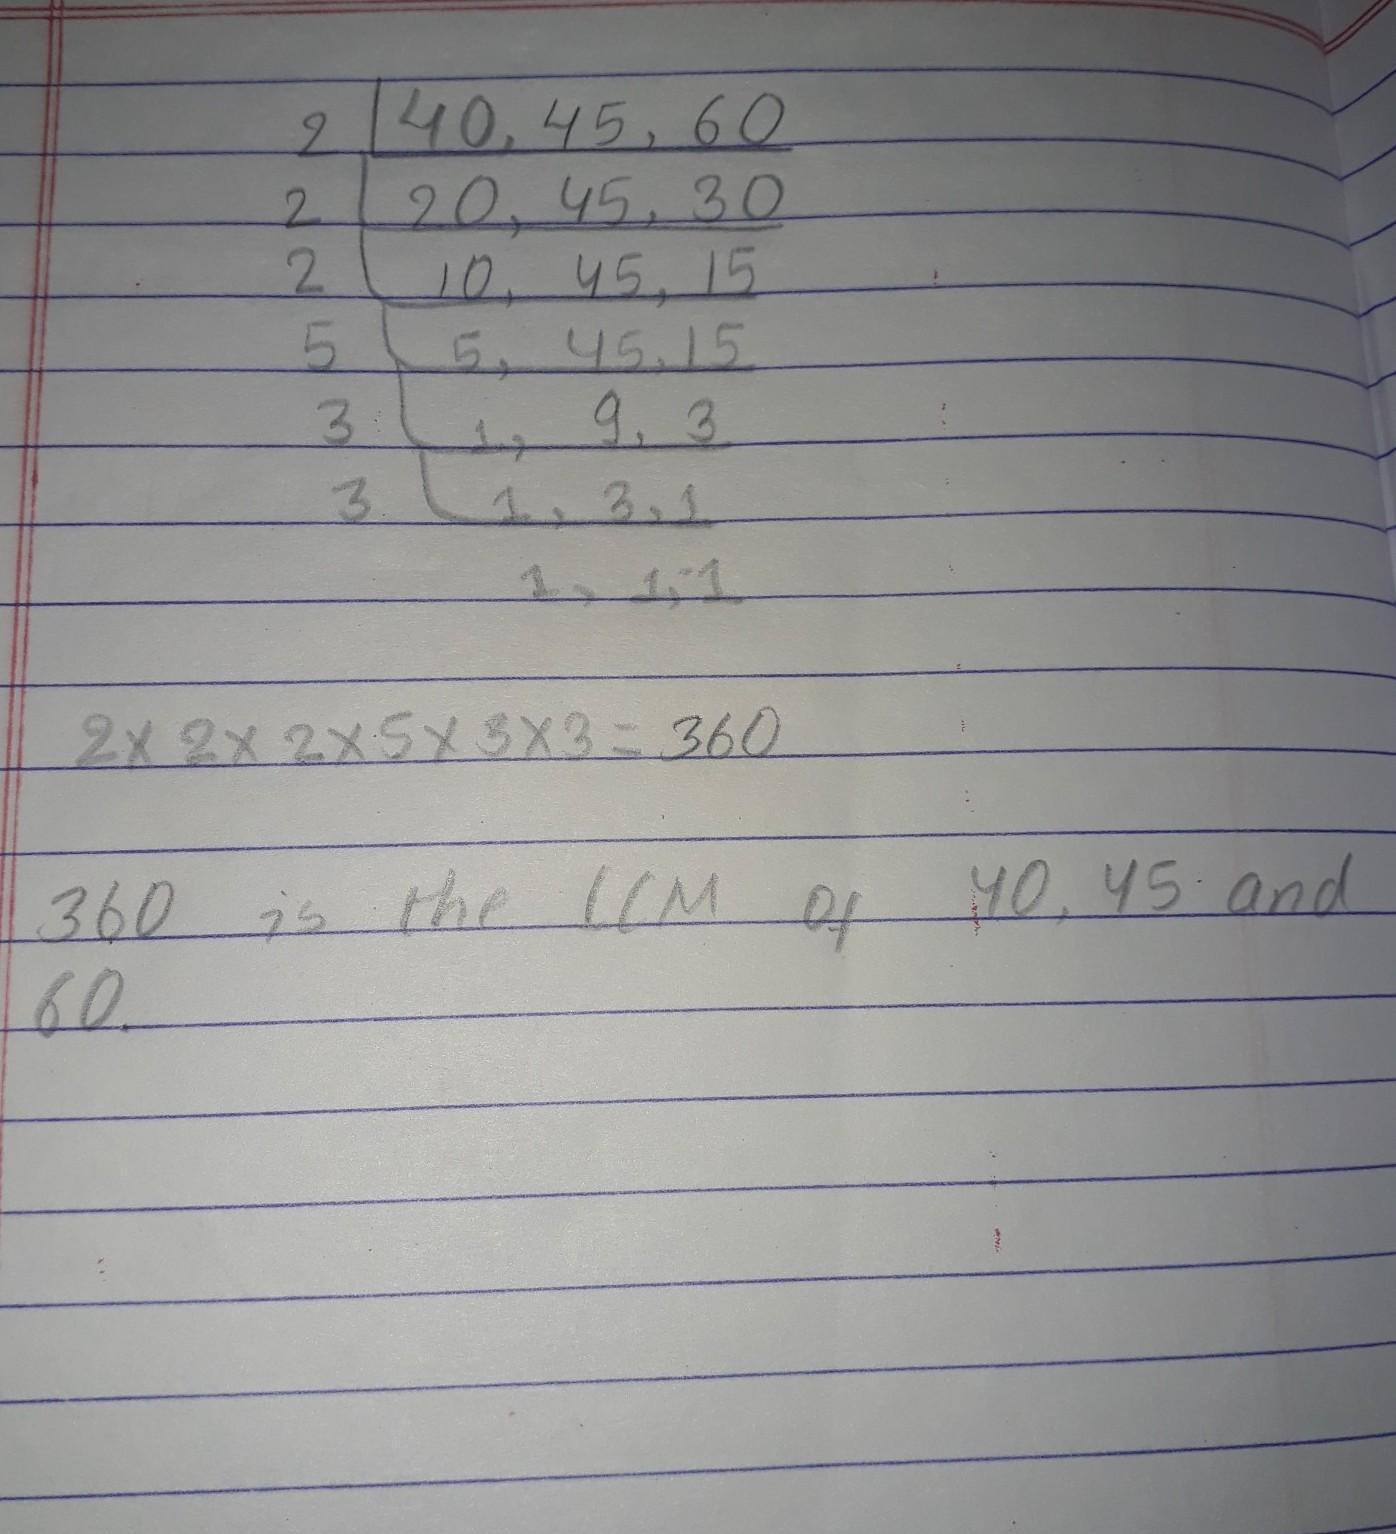 2 40, 45, 60
2 20, 45, 30
2 10, 45, 15
5 5, 45, 15
3 1, 9, 3
3 1, 3, 1
1, 1, 1
2 x 2 x 2 x 5 x 3 x 3 = 360
360 is the LCM of 40, 45 and
60.